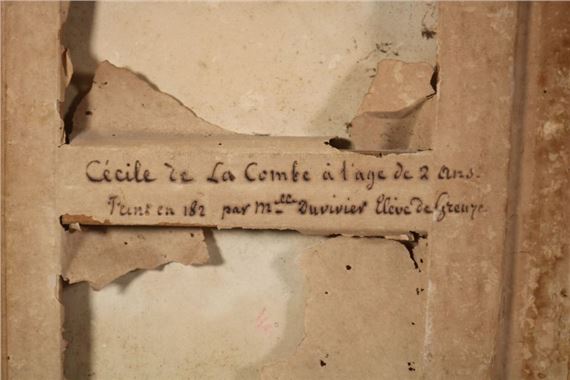 Cécile de La Combe à l'age de 2 ans.
Peint en 182 par Mlle Duvivier Elève de Greuze